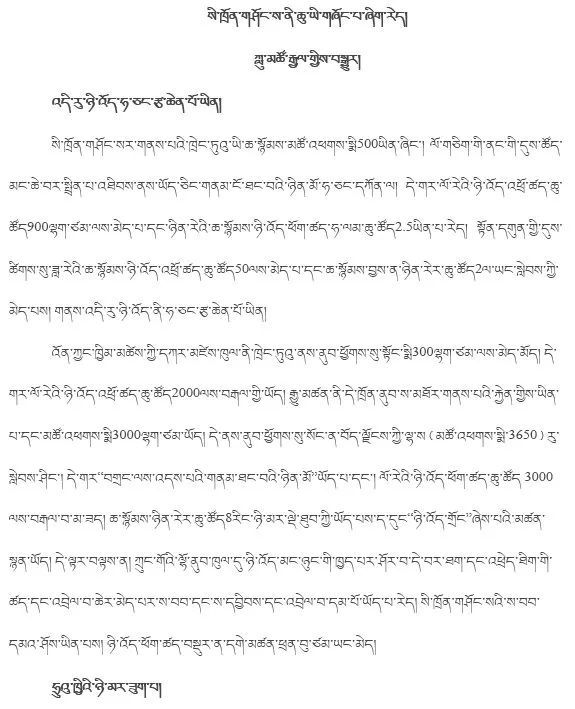 སི་ཁྲོན་གཤོང་ས་ནི་ཆུ་ཡི་གཞོང་པ་ཞིག་རེད།
ཀླུ་མཚོ་རྒྱལ་གྱིས་བསྒྱུར།
འདི་རུ་ཉི་འོད་ཧ་ཅང་རྩ་ཆེན་པོ་ཡིན།
སི་ཁྲོན་གཤོང་སར་གནས་པའི་ཁྲེང་ཏུའུ་ཡི་ཆ་སྙོམས་མཚོ་འཕགས་སྨི500ཡིན་ཞིང་། ལོ་གཅིག་གི་ནང་གི་དུས་ཚོད་
མང་ཆེ་བར་སྤྲིན་པ་འཐིབས་ནས་ཡོད་ཅིང་གནམ་ངོ་ཐང་བའི་ཉིན་མོ་ཧ་ཅང་དཀོན་ལ། དེ་གར་ལོ་རེའི་ཉི་འོད་འཕྲོ་ཚད་ཆུ་
ཚོད900ལྷག་ཙམ་ལས་མེད་པ་དང་ཉིན་རེའི་ཆ་སྙོམས་ཉི་འོད་ཕོག་ཚད་ཧ་ལམ་ཆུ་ཚོད2.5ཡིན་པ་རེད། སྟོན་དགུན་གྱི་དུས་
ཚིགས་སུ་ཟླ་རེའི་ཆ་སྙོམས་ཉི་འོད་འཕྲོ་ཚད་ཆུ་ཚོད50ལས་མེད་པ་དང་ཆ་སྙོམས་བྱས་ན་ཉིན་རེར་ཆུ་ཚོད2ལ་ཡང་སླེབས་ཀྱི་
མེད་པས། གནས་འདི་རུ་ཉི་འོད་ནི་ཧ་ཅང་རྩ་ཆེན་པོ་ཡིན།
འོན་ཀྱང་ཁྱིམ་མཚེས་ཀྱི་དཀར་མཛེས་ཁུལ་ནི་ཁྲེང་ཏུའུ་ནས་ནུབ་ཕྱོགས་སུ་སྟོང་སྨི300ལྷག་ཙམ་ལས་མེད་མོད། དེ་
གར་ལོ་རེའི་ཉི་འོད་འཕྲོ་ཚད་ཆུ་ཚོད2000ལས་བརྒལ་གྱི་ཡོད། རྒྱུ་མཚན་ནི་དེ་ཁྲོན་ནུབ་ས་མཐོར་གནས་པའི་རྐྱེན་གྱིས་ཡིན་
པ་དང་མཚོ་འཕགས་སྨི3000ལྷག་ཙམ་ཡོད། དེ་ནས་ནུབ་ཕྱོགས་སུ་སོང་ན་བོད་ལྗོངས་ཀྱི་ལྷ་ས (མཚོ་འཕགས་སྨི་3650) རུ་
སླེབས་ཤིང་། དེ་གར“བགྲང་ལས་འདས་པའི་གནམ་ཐང་བའི་ཉིན་མོ”ཡོད་པ་དང་། ལོ་རེའི་ཉི་འོད་ཕོག་ཚད་ཆུ་ཚོད 3000
ལས་བརྒལ་བ་མ་ཟད། ཆ་སྙོམས་ཉིན་རེར་ཆུ་ཚོད8རིང་ཉི་མར་ལྡེ་ཐུབ་ཀྱི་ཡོད་པས་ད་དུང“ཉི་འོད་གྲོང”ཞེས་པའི་མཚན་
སྙན་ཡོད། དེ་ལྟར་བལྟས་ན། ཀྲུང་གོའི་ལྷོ་ནུབ་ཁུལ་དུ་ཉི་འོད་མང་ཉུང་གི་ཁྱད་པར་ཤོར་བ་དེ་བར་ཐག་དང་འཕྲེད་ཐིག་གི་
ཚད་དང་འབྲེལ་བ་ཆེར་མེད་པར་ས་བབ་དང་ས་དབྱིབས་དང་འབྲེལ་བ་དམ་པོ་ཡོད་པ་རེད། སི་ཁྲོན་གཤོང་སའི་ས་བབ་
དམའ་ཤོས་ཡིན་པས། ཉི་འོད་ཕོག་ཚད་བསྡུར་ན་དགེ་མཚན་ཕྲན་བུ་ཙམ་ཡང་མེད།
ཧྲུའུ་ཁྱིའི་ཉི་མར་ཟུག་པ།